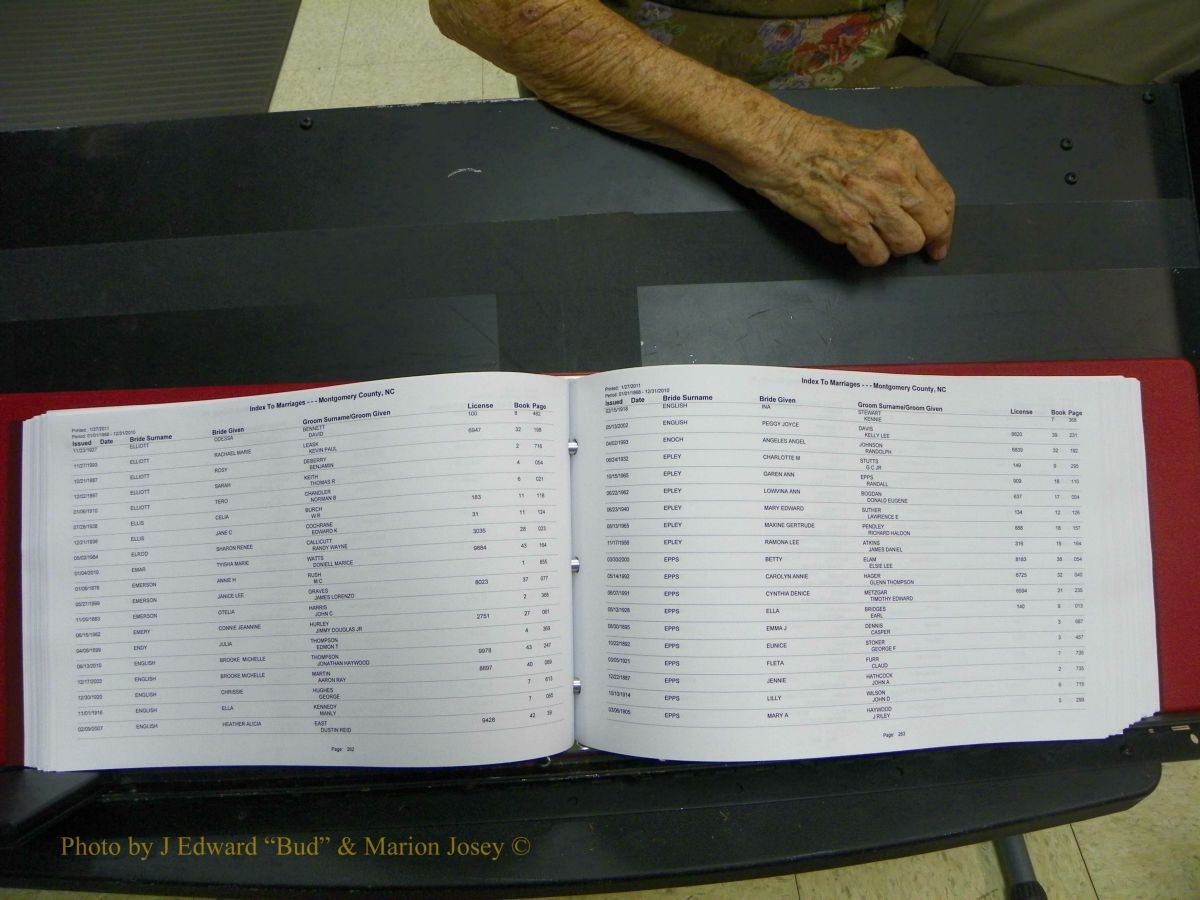 Printed: 1/27/2011
Period: 01/01/1868 - 12/31/2010
Index To Marriages - - - Montgomery County, NC
Issued Date Bride Surname Bride Given Groom Surname/Groom Given License Book Page
11/23/1927 ELLIOTT ODESSA BENNETT 100 8 482
DAVID
11/27/1993 ELLIOTT RACHAEL MARIE LEASK 6947 32 198
KEVIN PAUL
10/21/1887 ELLIOTT ROSY DEBERRY 2 716
BENJAMIN
12/02/1897 ELLIOTT SARAH KEITH 4 054
THOMAS R
01/06/1910 ELLIOTT TERO CHANDLER 6 021
NORMAN B
07/28/1938 ELLIS CELIA BURCH 183 11 118
W R
12/21/1936 ELLIS JANE C COCHRANE 31 11 124
EDWARD K
05/02/1984 ELROD SHARON RENEE CALLICUTT 3035 28 023
RANDY WAYNE
01/04/2010 EMAR TYISHA MARIE WATTS 9884 43 164
DONIELL MARICE
01/06/1876 EMERSON ANNIE H RUSH 1 855
M C
05/27/1999 EMERSON JANICE LEE GRAVES 8023 37 077
JAMES LORENZO
11/09/1883 EMERSON OTELIA HARRIS 2 366
JOHN C
06/16/1982 EMERY CONNIE JEANNINE HURLEY 2751 27 081
JIMMY DOUGLAS JR
04/06/1899 ENDY JULIA THOMPSON 4 369
EDMON T
08/13/2010 ENGLISH BROOKE MICHELLE THOMPSON 9978 43 247
JONATHAN HAYWOOD
12/17/2003 ENGLISH BROOKE MICHELLE MARTIN 8897 40 089
AARON RAY
12/30/1920 ENGLISH CHRISSIE HUGHES 7 613
GEORGE
11/01/1916 ENGLISH ELLA KENNEDY 7 065
MANLY
02/09/2007 ENGLISH HEATHER ALICIA EAST 9428 42 39
DUSTIN REID
Page: 262
Printed: 1/27/2011
Period: 01/01/1868 - 12/31/2010
Index To Marriages - - - Montgomery County, NC
Issued Date Bride Surname Bride Given Groom Surname/Groom Given License Book Page
02/15/1918 ENGLISH INA STEWART 7 368
KENNIE
05/13/2002 ENGLISH PEGGY JOYCE DAVIS 8620 39 231
KELLY LEE
04/02/1993 ENOCH ANGELES ANGEL JOHNSON 6839 32 192
RANDOLPH
08/24/1932 EPLEY CHARLOTTE M STUTTS 149 9 295
G C JR
10/15/1965 EPLEY GAREN ANN EPPS 909 18 110
RANDALL
06/22/1962 EPLEY LOWVINA ANN BOGDAN 637 17 004
DONALD EUGENE
06/23/1940 EPLEY MARY EDWARD SUTHER 134 12 126
LAWRENCE E
08/13/1965 EPLEY MAXINE GERTRUDE PENDLEY 888 18 157
RICHARD HALDON
11/17/1956 EPLEY RAMONA LEE ATKINS 316 15 164
JAMES DANIEL
03/30/2000 EPPS BETTY ELAM 8163 38 054
ELSIE LEE
05/14/1992 EPPS CAROLYN ANNIE HAGER 6725 32 040
GLENN THOMPSON
06/07/1991 EPPS CYNTHIA DENICE METZGAR 6594 31 235
TIMOTHY EDWARD
05/12/1928 EPPS ELLA BRIDGES 140 9 013
EARL
08/30/1895 EPPS EMMA J DENNIS 3 667
CASPER
10/22/1892 EPPS EUNICE STOKER 3 457
GEORGE F
03/05/1921 EPPS FLETA FURR 7 736
CLAUD
12/22/1887 EPPS JENNIE HATHCOCK 2 735
JOHN A
10/10/1914 EPPS LILLY WILSON 6 715
JOHN D
03/05/1905 EPPS MARY A HAYWOOD 5 289
J RILEY
Page: 263
Photo by J Edward “Bud” & Marion Josey ©